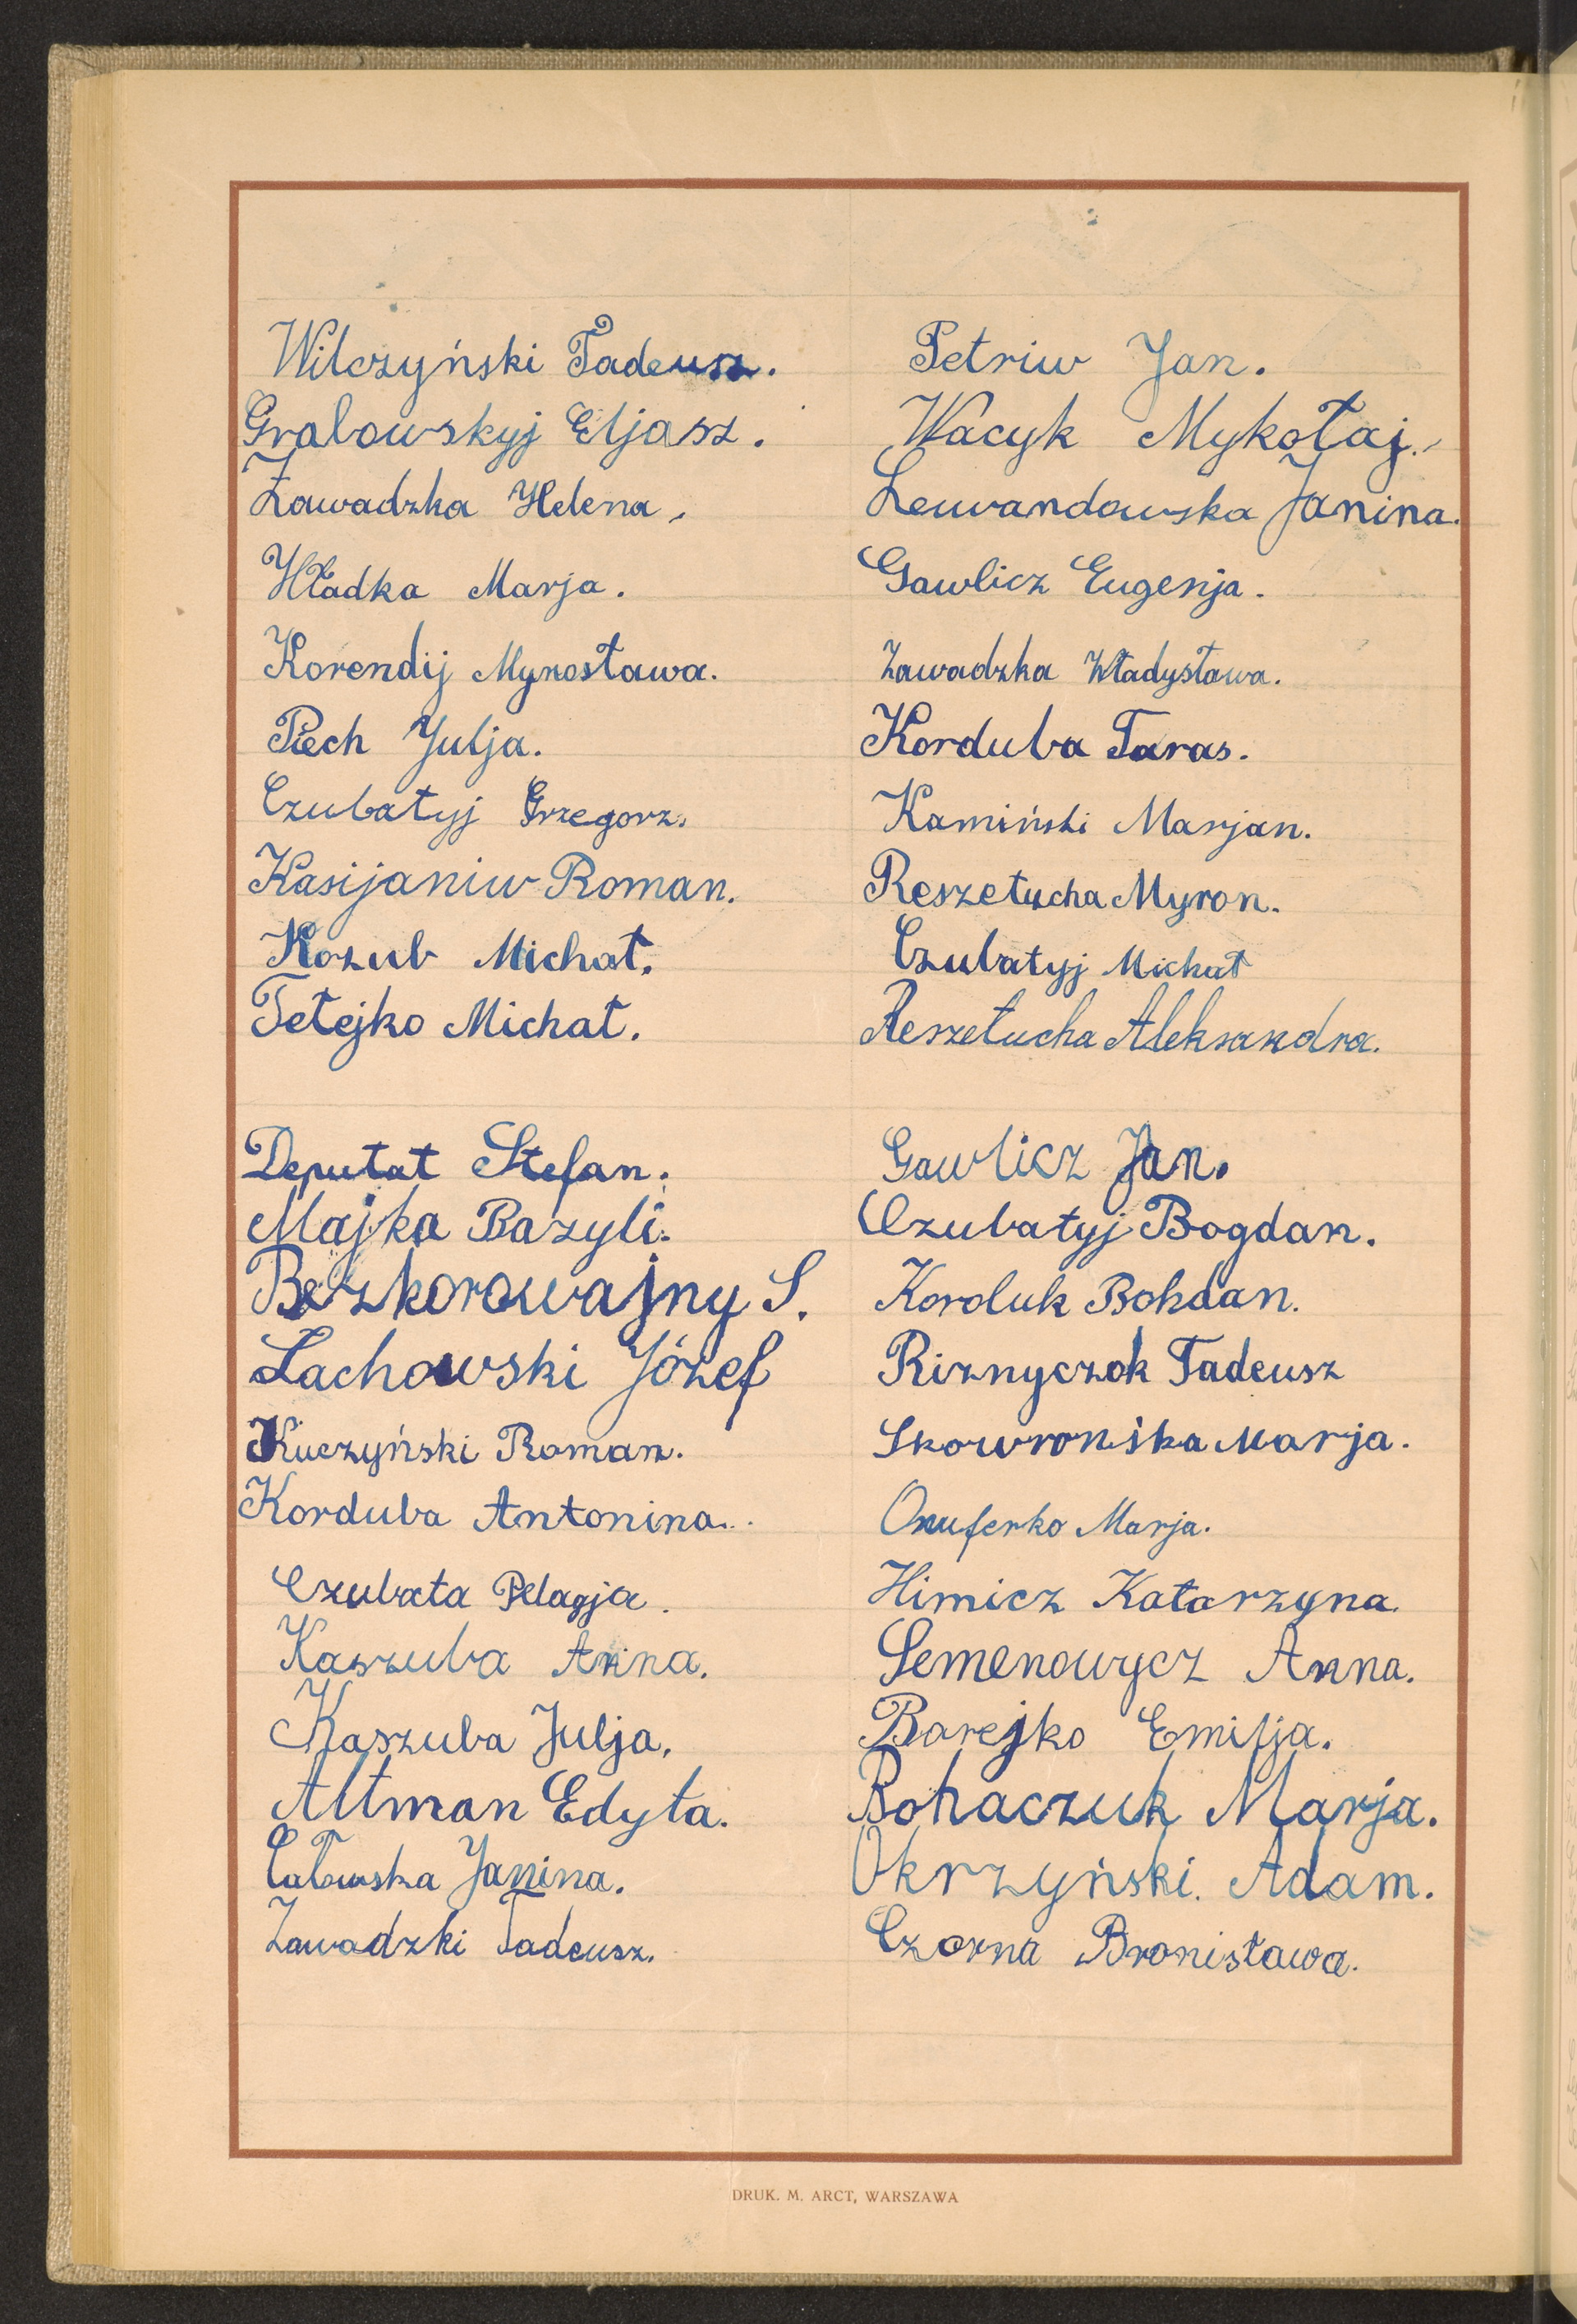 Wilczyński Tadeusz.
Grabowskyj Eljasz.
Zawadzka Helena.
Hładka Marja.
Korendij Myrosława.
Piech Julja.
Czubatyj Grzegorz.
Kasijaniw Roman.
Kozub Michał.
Tetejko Michał.
Deputat Stefan.
Majka Bazyli.
Bezkorowajny S.
Lachowski Józef
Kuczyński Roman.
Korduba Antonina.
Czubata Pelagja.
Kaszuba Anna.
Kaszuba Julja.
Altman Edyta.
Janina.
Zawadzki Tadeusz.
Petriw Jan.
Wacyk Mykołaj.
Lewandowska Janina.
Gawlicz Eugenja.
Zawadzka Władysława.
Korduba Taras.
Kamiński Marjan.
Reszetucha Myron.
Czubatyj Michał
Reszetucha Aleksandra.
Gawlicz Jan.
Czubatyj Bogdan.
Koroluk Bohdan.
Riznyczok Tadeusz
Skowrońska Marja.
Onuferko Marja.
Himicz Katarzyna.
Semenowycz Anna.
Barejko Emilja.
Bohaczuk Marja.
Okrzyński. Adam.
Czorna Bronisława.
DRUK. M. ARCT, WARSZAWA